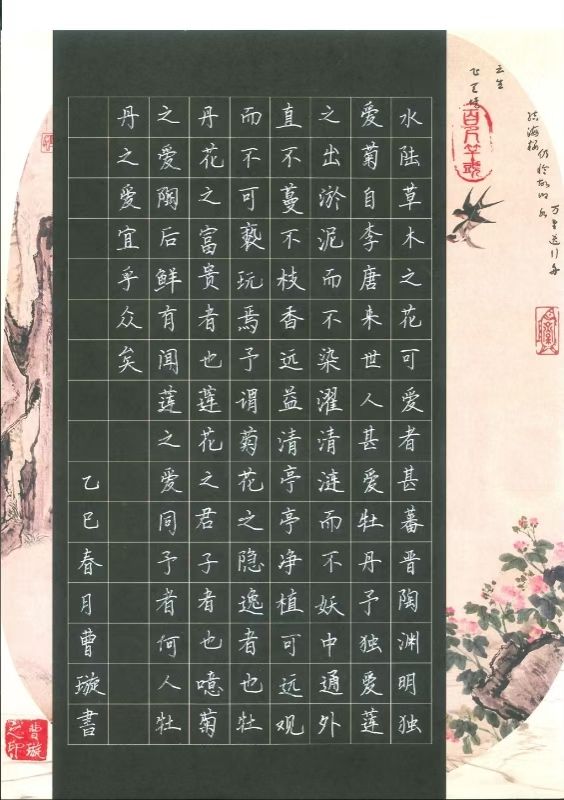 万里送行舟
仍怜故乡水
结海楼
云生
飞天镜
水陆草木之花可爱者甚蕃晋陶渊明独
爱菊自李唐来世人甚爱牡丹予独爱莲
之出淤泥而不染濯清涟而不妖中通外
直不蔓不枝香远益清亭亭净植可远观
而不可亵玩焉予谓菊花之隐逸者也牡
丹花之富贵者也莲花之君子者也噫菊
之爱陶后鲜有闻莲之爱同予者何人牡
丹之爱宜乎众矣
乙巳春月曹璇書
曹璇之印